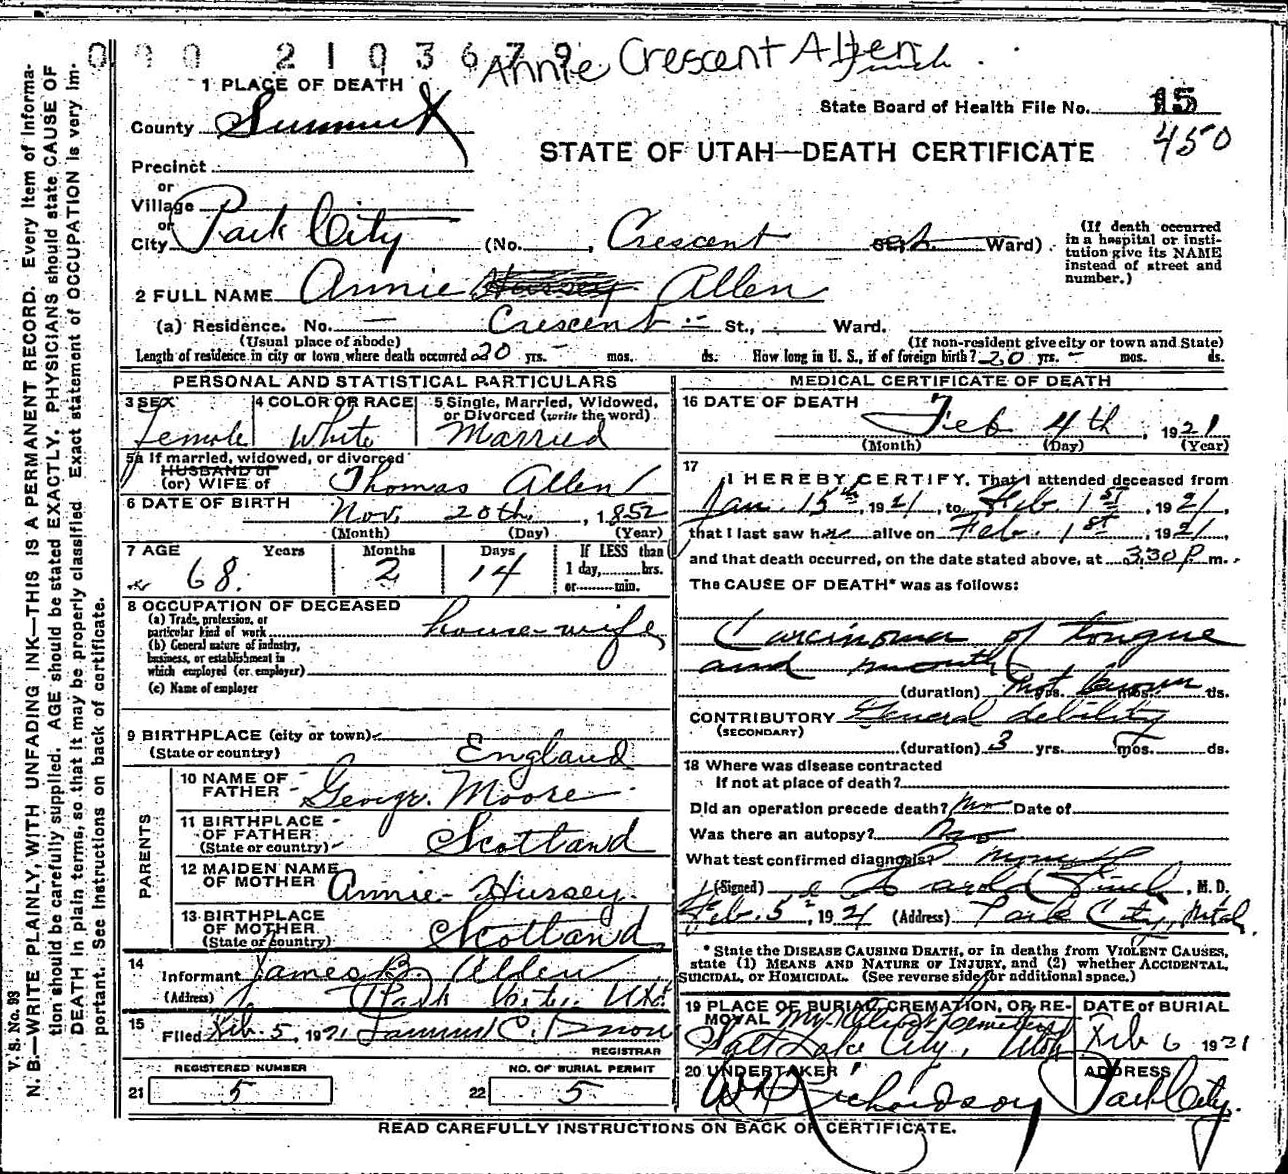 000 2103679 Annie Crescent Allen
State Board of Health File No. 15
450
STATE OF UTAH—DEATH CERTIFICATE
1 PLACE OF DEATH
County Summit
Precinct
or
Village
or
City Park City (No. , Crescent St. Ward)
(If death occurred in a hospital or institution give its NAME instead of street and number.)
2 FULL NAME Annie Hussey Allen
(a) Residence. No. — Crescent — St., Ward.
(Usual place of abode) (If non-resident give city or town and State)
Length of residence in city or town where death occurred 20 yrs. - mos. ds. How long in U. S., if of foreign birth? 20 yrs. - mos. ds.
PERSONAL AND STATISTICAL PARTICULARS
3 SEX 4 COLOR OR RACE 5 Single, Married, Widowed, or Divorced (write the word)
Female White Married
5a If married, widowed, or divorced
HUSBAND of
(or) WIFE of Thomas Allen
6 DATE OF BIRTH Nov. 20th, 1852
(Month) (Day) (Year)
7 AGE Years Months Days If LESS than
1 day, hrs.
or min.
68 2 14
8 OCCUPATION OF DECEASED
(a) Trade, profession, or
particular kind of work house-wife
(b) General nature of industry,
business, or establishment in
which employed (or employer)
(c) Name of employer
9 BIRTHPLACE (city or town)
(State or country) England
PARENTS
10 NAME OF FATHER George Moore
11 BIRTHPLACE OF FATHER
(State or country) Scotland
12 MAIDEN NAME OF MOTHER Annie Hussey
13 BIRTHPLACE OF MOTHER
(State or country) Scotland
14
Informant James B. Allen
(Address) Park City, Utah
15
Filed Feb. 5, 1921 Samuel C.
REGISTRAR
REGISTERED NUMBER NO. OF BURIAL PERMIT
21 5 22 5
MEDICAL CERTIFICATE OF DEATH
16 DATE OF DEATH
Feb 4th, 1921
(Month) (Day) (Year)
17
I HEREBY CERTIFY, That I attended deceased from
Jan. 15th, 1921, to Feb. 1st, 1921,
that I last saw her alive on Feb. 1st, 1921,
and that death occurred, on the date stated above, at 3.30 P m.
The CAUSE OF DEATH* was as follows:
Carcinoma of tongue
and mouth
(duration) Not known yrs. mos. ds.
CONTRIBUTORY General debility
(SECONDARY)
(duration) 3 yrs. mos. ds.
18 Where was disease contracted
If not at place of death?
Did an operation precede death? No Date of
Was there an autopsy? No
What test confirmed diagnosis?
(Signed) Harold Finch, M. D.
Feb. 5th, 1921 (Address) Park City, Utah.
* State the DISEASE CAUSING DEATH, or in deaths from VIOLENT CAUSES,
state (1) MEANS AND NATURE OF INJURY, and (2) whether ACCIDENTAL,
SUICIDAL, or HOMICIDAL. (See reverse side for additional space.)
19 PLACE OF BURIAL, CREMATION, OR REMOVAL Mt. Olivet Cemetery
Salt Lake City, Utah
DATE OF BURIAL
Feb 6 1921
20 UNDERTAKER ADDRESS
W Richardson Park City.
READ CAREFULLY INSTRUCTIONS ON BACK OF CERTIFICATE.
V. S. No. 93
N. B.—WRITE PLAINLY, WITH UNFADING INK—THIS IS A PERMANENT RECORD. Every item of informa-
tion should be carefully supplied. AGE should be stated EXACTLY. PHYSICIANS should state CAUSE OF
DEATH in plain terms, so that it may be properly classified. Exact statement of OCCUPATION is very im-
portant. See instructions on back of certificate.